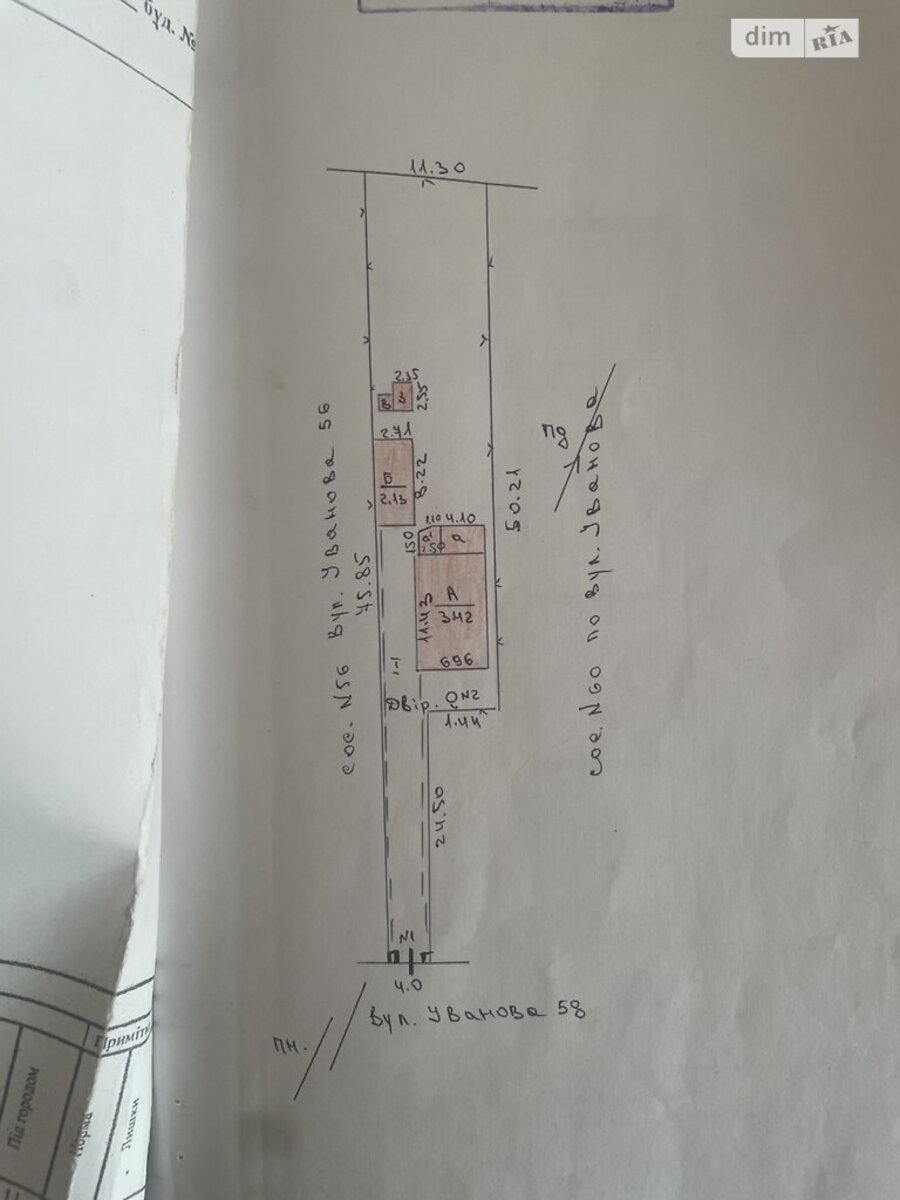 буд. №
dim RIA
11.30
2.35
В
З
2.55
2.71
Б
2.13
8.22
сос. N56 вул. Уванова 56
45.85
50.21
ПО
сос. N60 по вул. Уванова
1.10 4.10
1.50
а'
2.50
а
11.43
А
3.42
696
1-1
Двір.
QN2
1.44
24.50
N1
4.0
вул. Уванова 58
пн.
Приміт
Під городом
Норма
Лишки